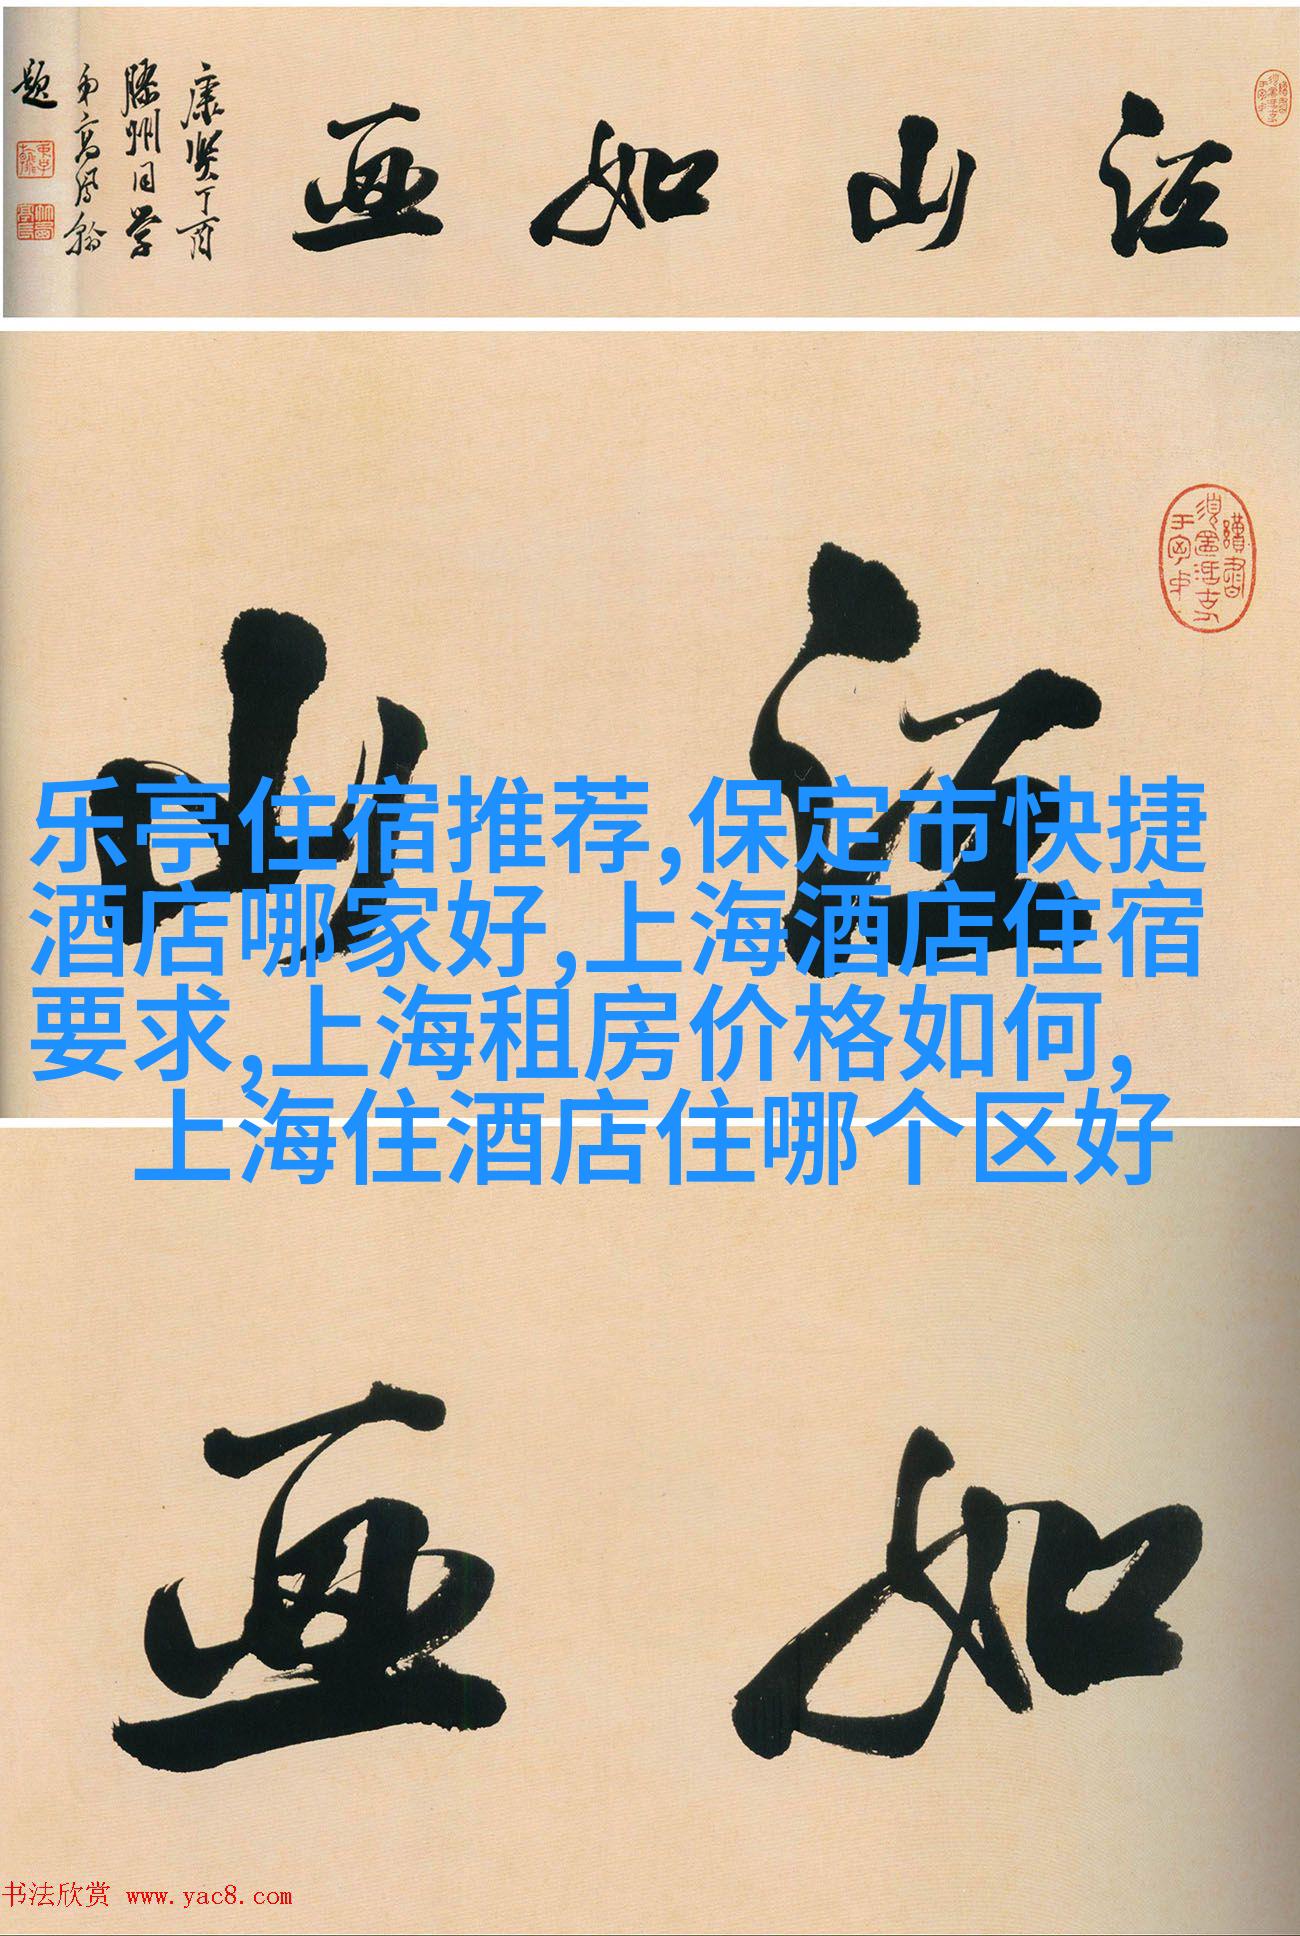 江山如画
康熙丁酉
滕州同学
弟高凤翰
题
山江
乐亭住宿推荐,保定市快捷
酒店哪家好,上海酒店住宿
要求,上海租房价格如何,
上海住酒店住哪个区好
画如
书法欣赏 www.yac8.com